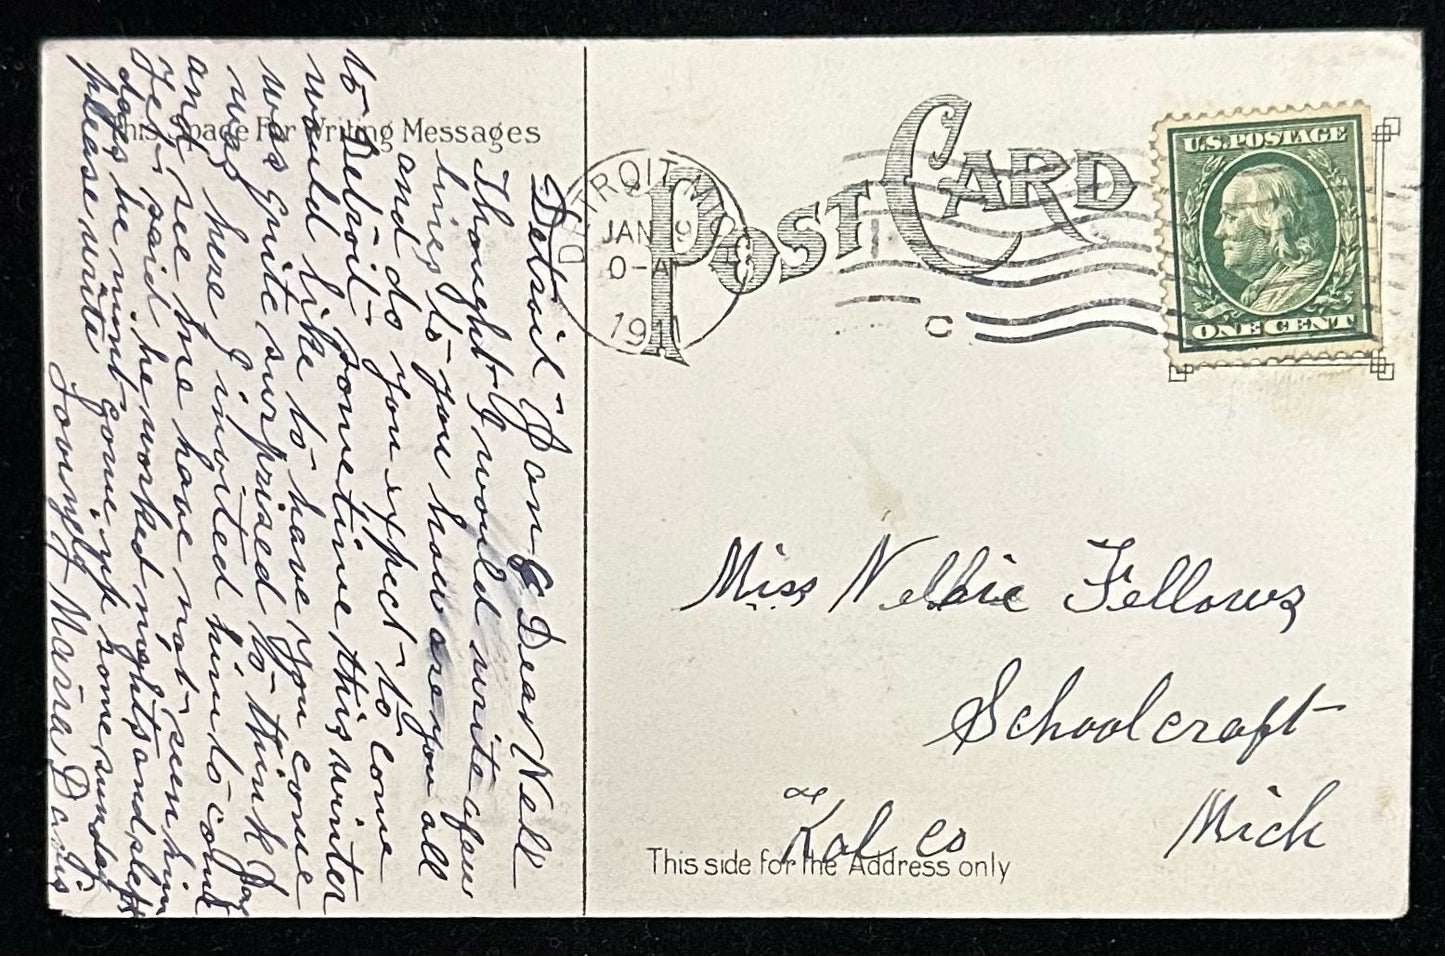 This Space For Writing Messages
POST CARD
DETROIT, MICH
JAN 9
0-A
1911
C
U.S. POSTAGE
ONE CENT
Detroit - Jan 8 Dear Nell
Thought I would write a few
lines to you how are you all
and do you expect to come
to Detroit sometime this winter
would like to have you come
was quite surprised to think Jay
was here I invited him to come
and see me have not seen him
yet said he worked nights and slept
days he might come up some sunday
please write
Lovingly Maria Davis
Miss Nellie Fellows
Schoolcraft
Kal Co Mich
This side for the Address only